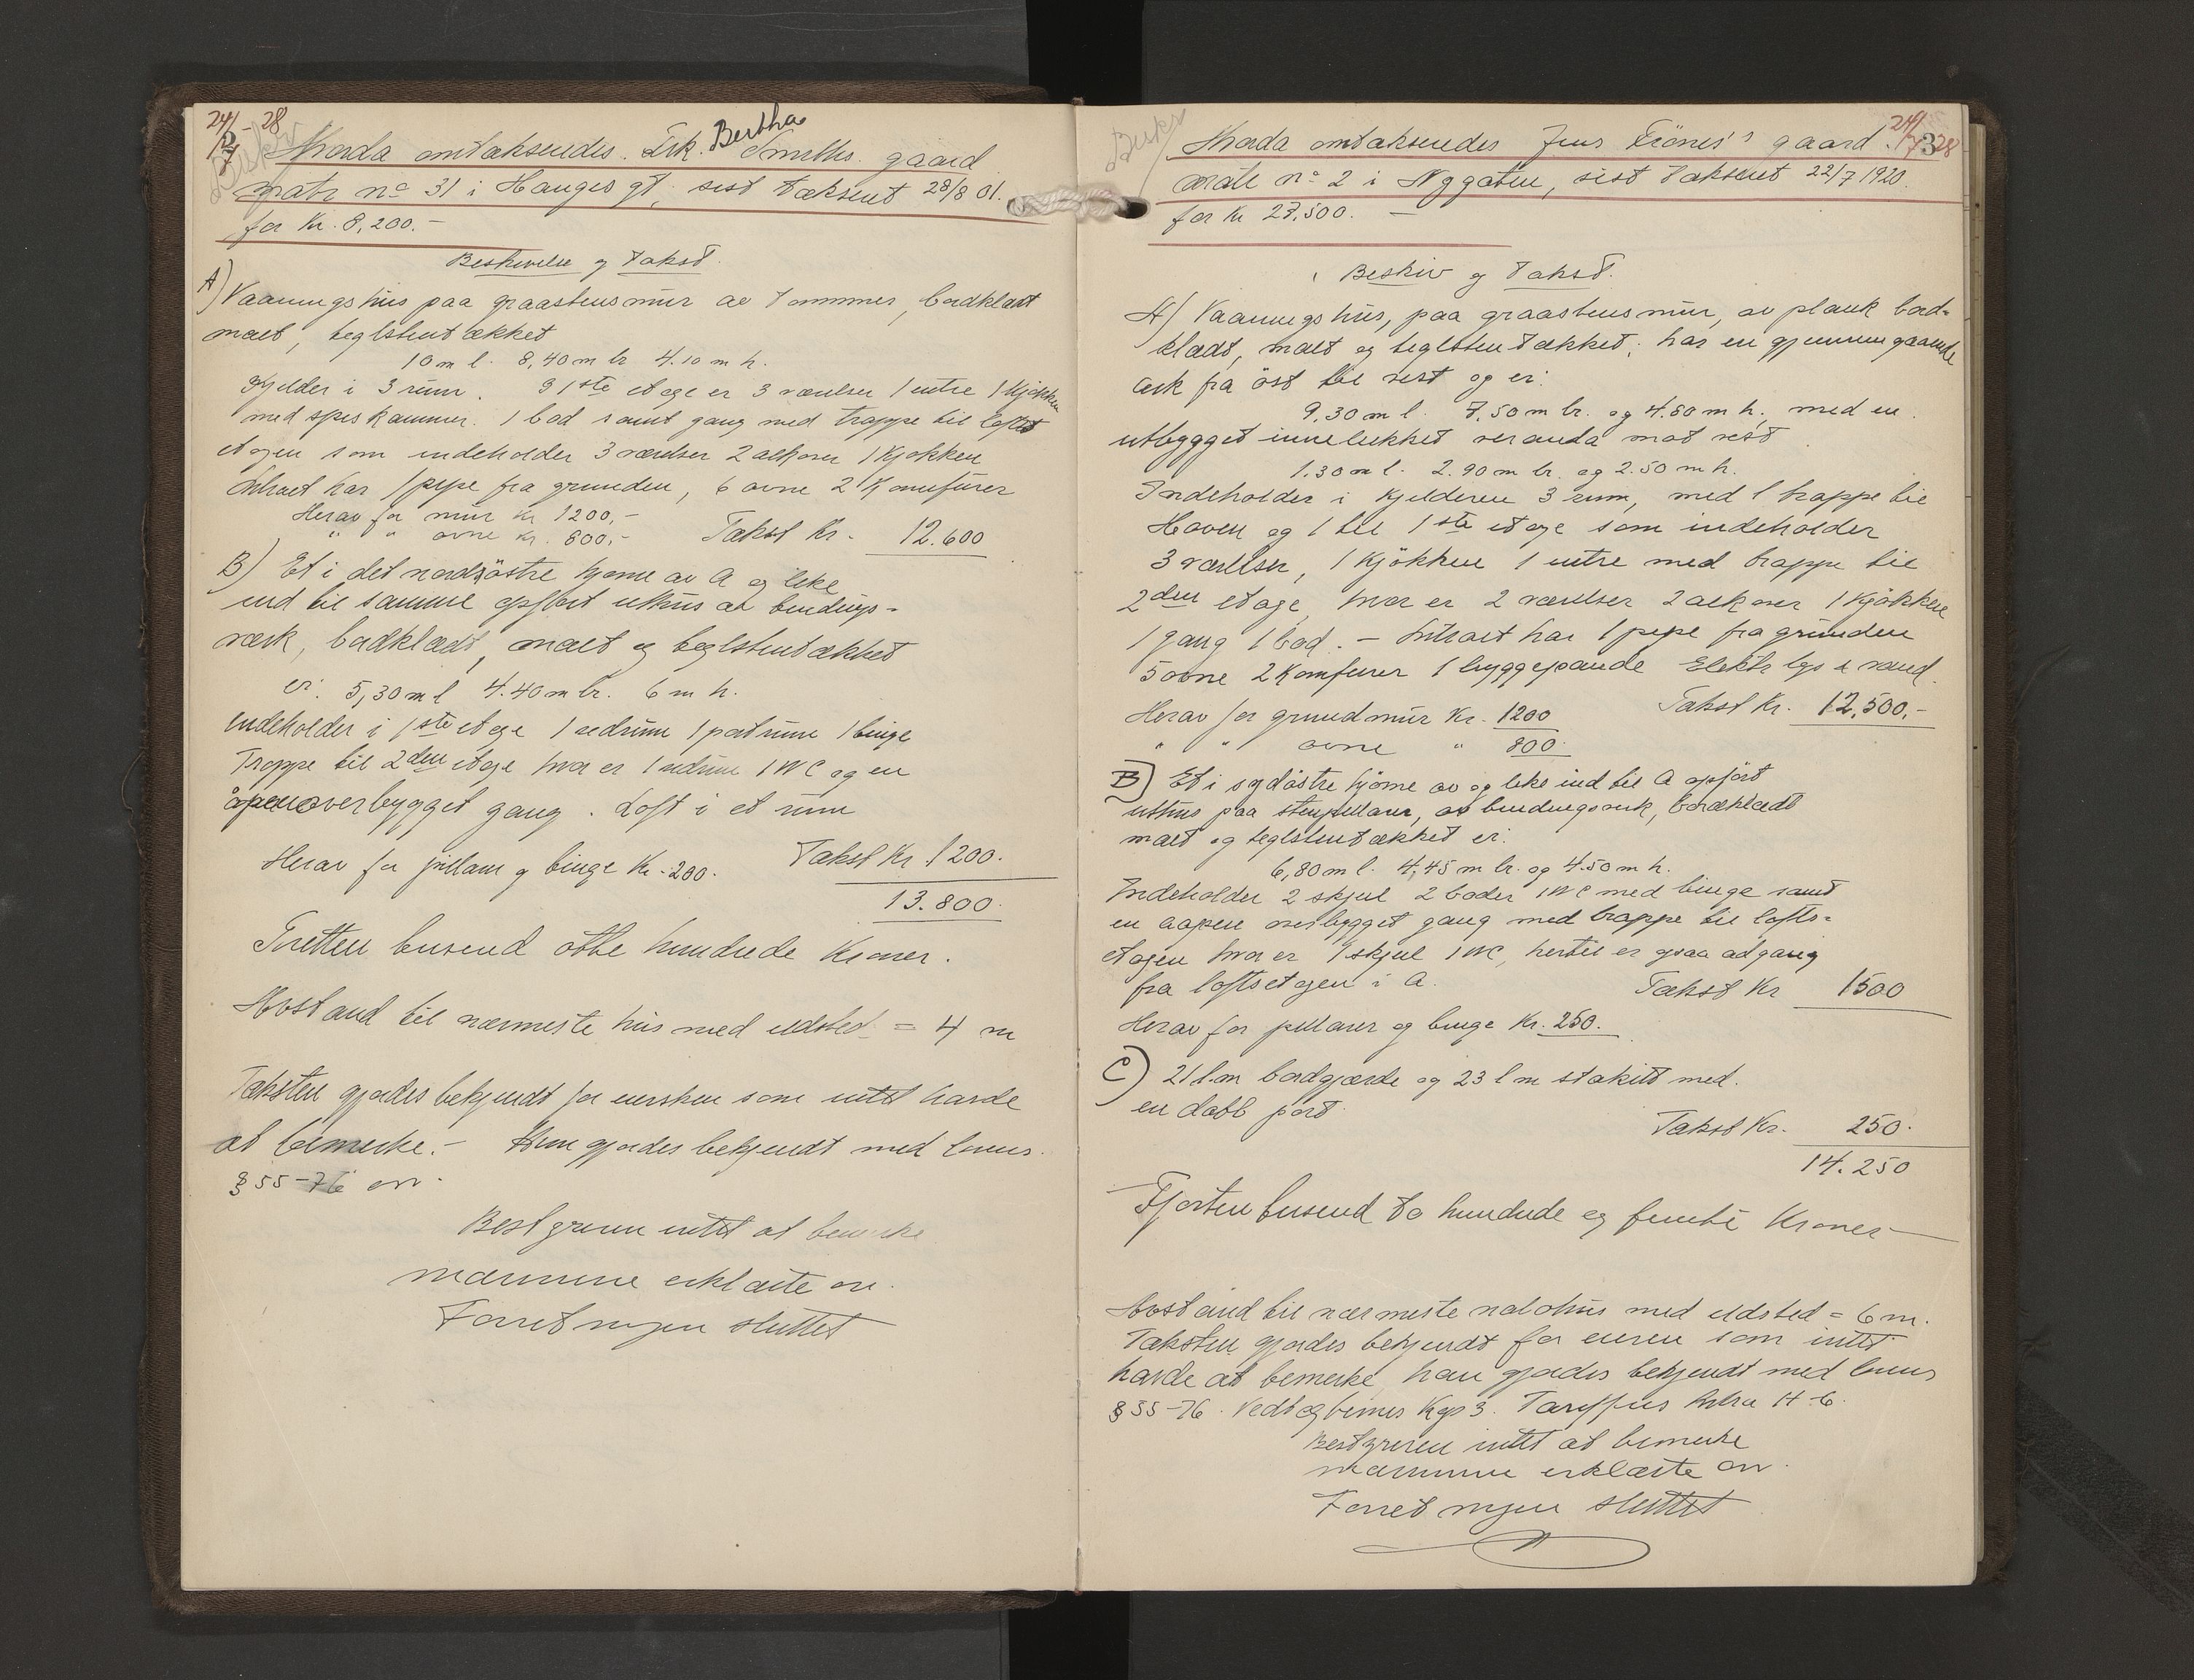 24/7 - 28
2
Beskr
Hvorda omtaksertes Frk. Bertha Smiths gaard
matr no 31 i Hauges gt, sist taksert 28/8 01.
for Kr. 8,200.-
Beskrivelse og Takst.
A) Vaaningshus paa graastensmur av tømmer, bordklædt
malt, teglstentækket
10 m l. 8,40 m br 4.10 m h.
Kjelder i 3 rum. I 1ste etage er 3 værelser 1 entre 1 kjøkken
med spiskammer. 1 bod samt gang med trappe til lofts
etagen som indeholder 3 værelser 2 alkover 1 kjøkken
Intraet har 1 pipe fra grunden, 6 ovne 2 Komfurer
Herav for mur kr 1200,-
" " ovne kr. 800,- Takst Kr. 12.600
B) Et i det nordøstre hjørne av A og like
ind til samme opført uthus av bindings-
værk, bordklædt, malt og teglstentækket
er: 5,30 m l 4.40 m br. 6 m h.
indeholder i 1ste etage 1 vedrum 1 portrum 1 binge
Trappe til 2den etage hvor er 1 vedrum 1 WC og en
åpen overbygget gang. Loft i et rum
Herav for pillarer og binge Kr. 200. Takst Kr 1200.
13.800.
Tretten tusend otte hundrede Kroner.
Avstand til nærmeste hus med ildsted = 4 m
Taksten gjordes bekjendt for eiersken som intet havde
at bemerke.- Hun gjordes bekjendt med lovens
§ 55-76 
Bestyreren intet at bemerke
mændene erklærte 
Forretningen sluttet
24/7 28
3
Beskr
Hvorda omtaksertes Jens Fiønes's gaard.
matr no 2 i Nygaten, sist taksert 22/7 1920.
for Kr 27.500. -
Beskriv og Takst.
A) Vaaningshus, paa graastensmur, av plank bord-
klædt, malt og teglstentækket; har en gjennemgaaende
ark fra øst til vest og er:
9,30 m l. 7,50 m br. og 4.60 m h; med en
utbygget innelukket veranda mot vest
1.30 m l. 2.90 m br. og 2.50 m h.
Indeholder i Kjelderen 3 rum, med 1 trappe til
Haven og 1 til 1ste etage som indeholder
3 værelser, 1 Kjøkken 1 entre med trappe til
2den etage, hvor er 2 værelser 2 alkover 1 Kjøkken
1 gang 1 bod. - Intraet har 1 pipe fra grunden
5 ovne 2 Komfurer 1 bryggepande Elektr lys i vand.
Herav for grundmur Kr. 1200 Takst Kr. 12,500.-
" " ovne " 800.
B) Et i sydøstre hjørne av og like ind til A opført
uthus paa stenpillarer, av bindingsverk, bordklædt
malt og teglstentækket er:
6,80 m l. 4,45 m br. og 4.50 m h.
Indeholder 2 skjul 2 boder 1 WC med binge samt
en aapen overbygget gang med trappe til lofts-
etagen hvor er 1 skjul 1 WC, hertil er ogsaa adgang
fra loftsetagen i A. Takst Kr 1500
Herav for pillarer og binge Kr. 250.
C) 21 l.m bordgjærde og 23 l m stakitt med
en dobb port.
Takst Kr. 250.
14.250
Fjorten tusend to hundrede og femti Kroner
Avstand til nærmeste nabohus med ildsted = 6 m.
Taksten gjordes bekjendt for eieren som intet
havde at bemerke han gjordes bekjendt med lovens
§ 55-76. 
Bestyreren intet at bemerke
mændene erklærte 
Forretningen sluttet